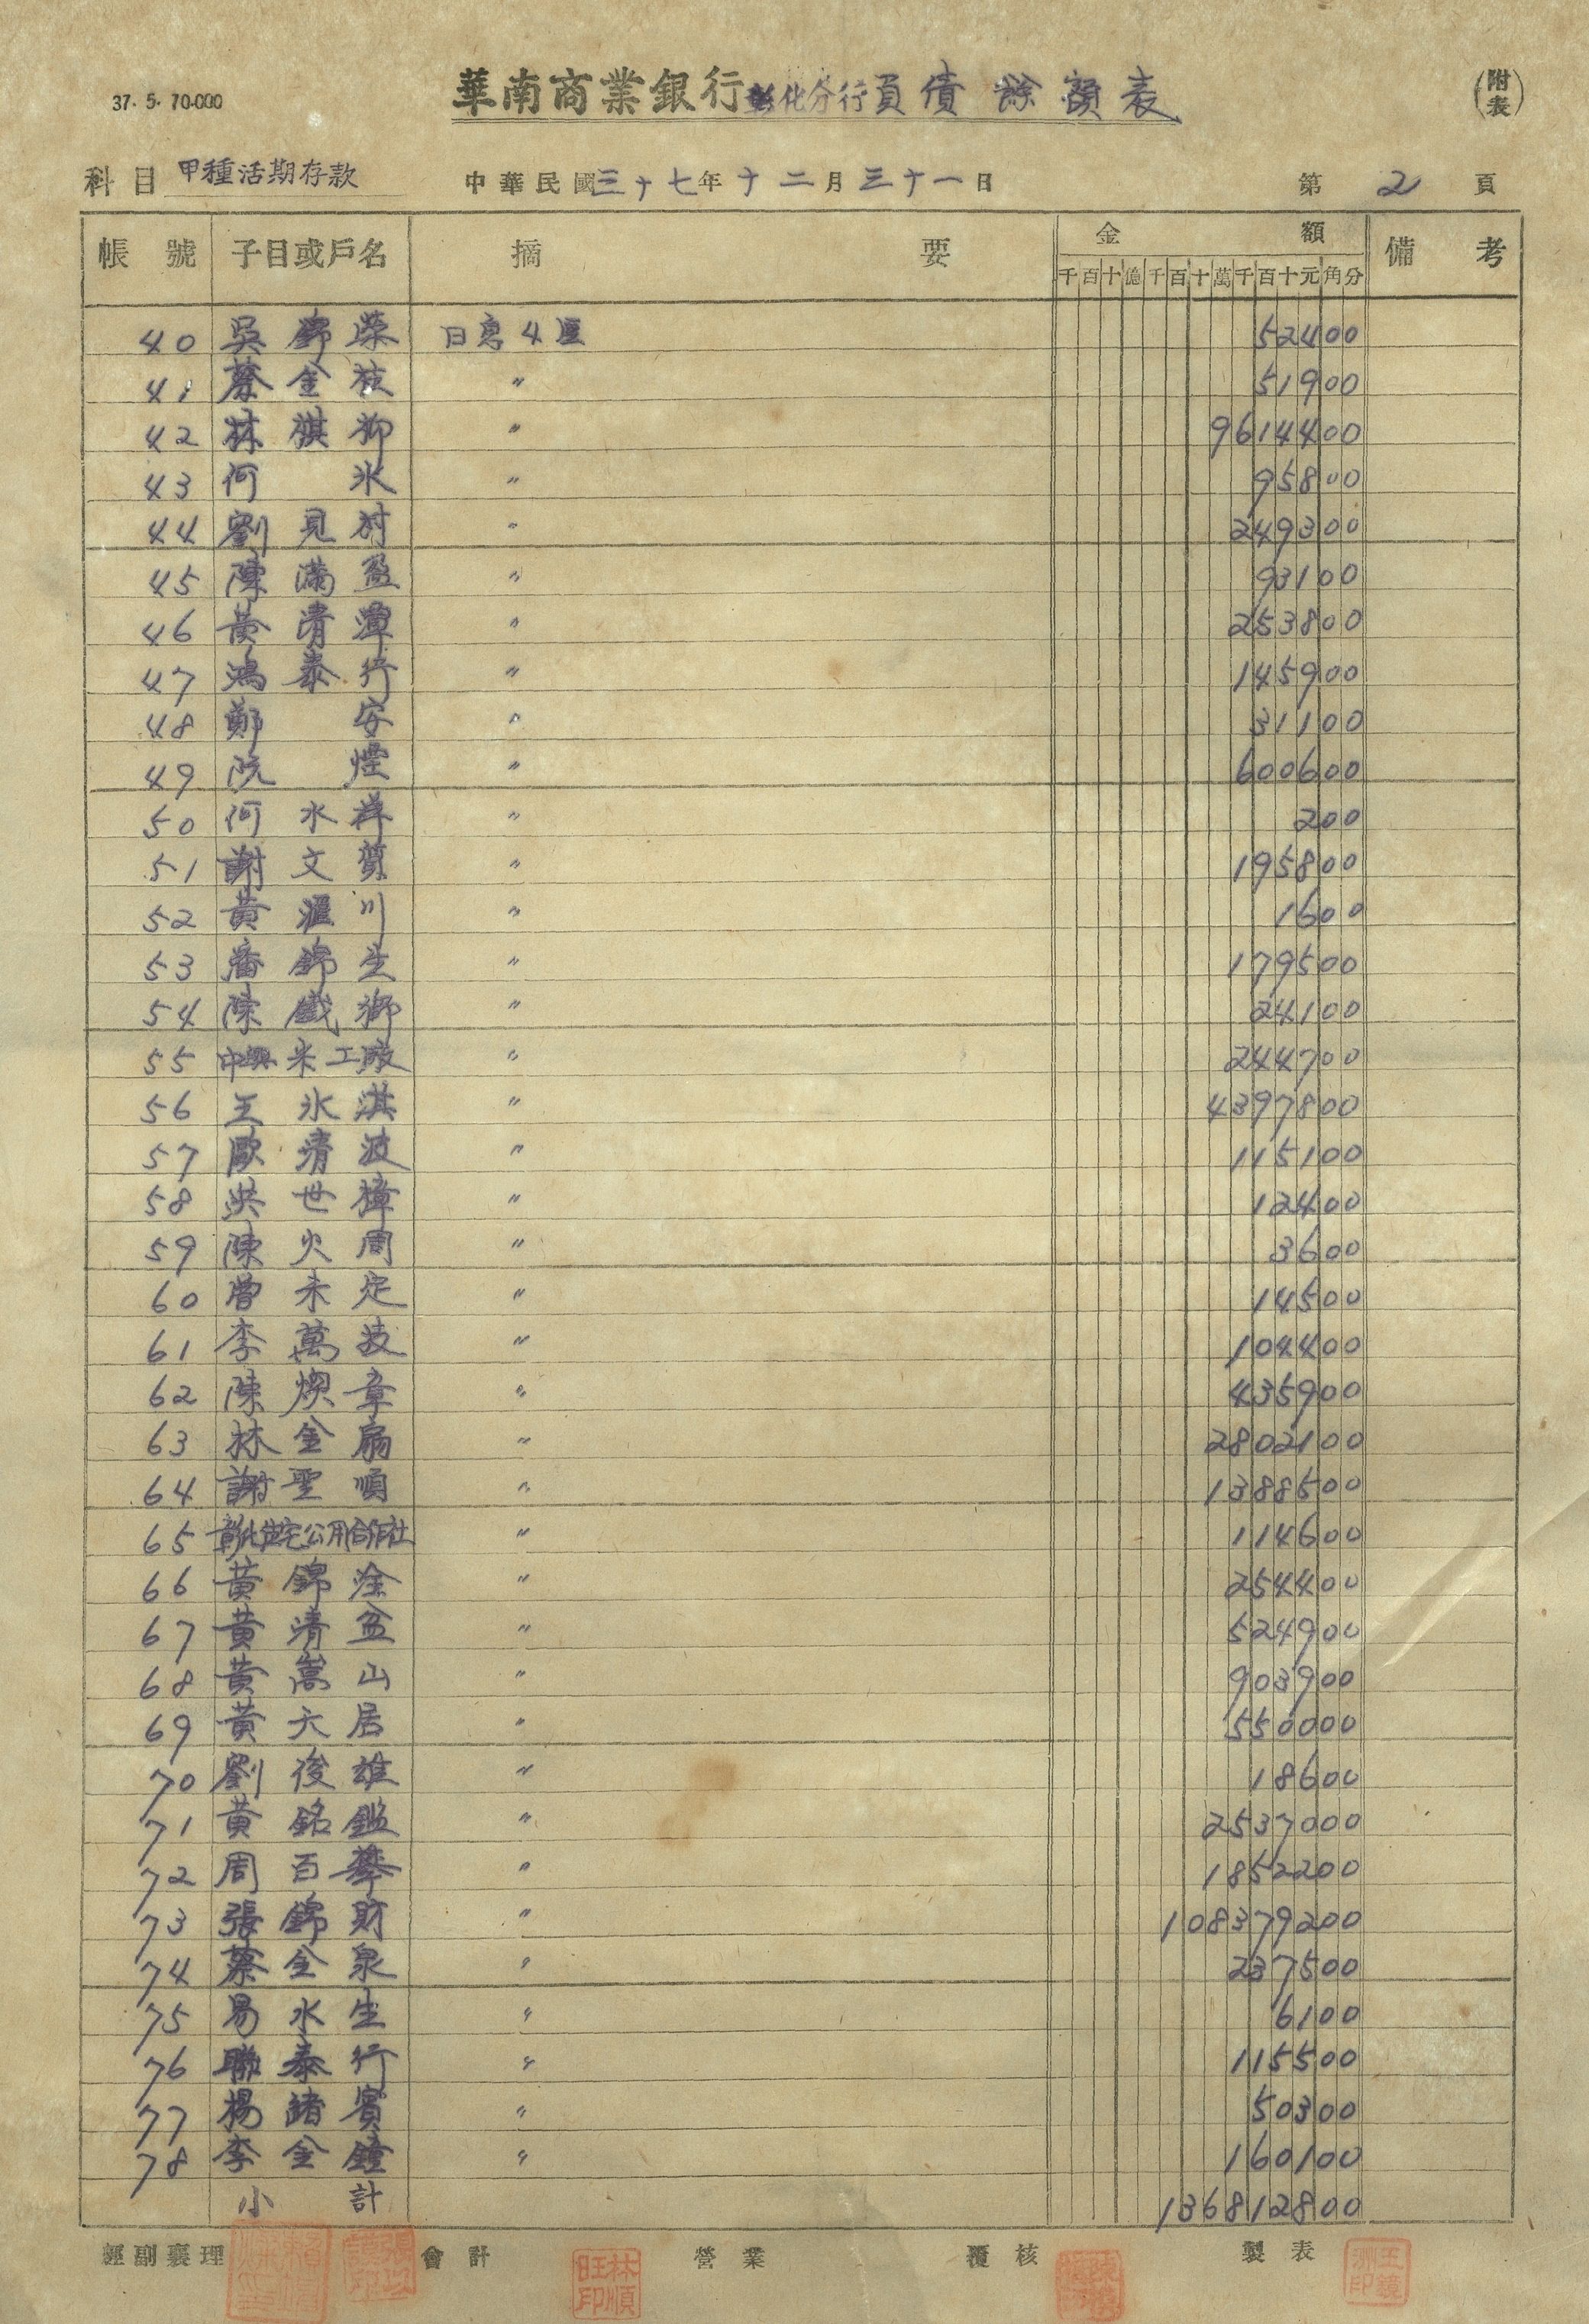 37. 5. 70.000
華南商業銀行彰化分行負債餘額表
(附表)
科目 甲種活期存款 中華民國三十七年十二月三十一日 第 2 頁
帳號 子目或戶名 摘要 金額 備考
千百十億千百十萬千百十元角分
40 吳錦榮 日息4厘 52400
41 蔡金枝 〃 51900
42 林祺柳 〃 9614400
43 何 氷 〃 95800
44 劉見村 〃 249300
45 陳滿盈 〃 93100
46 黃清潭 〃 253800
47 鴻泰行 〃 145900
48 鄭 安 〃 31100
49 阮 煙 〃 600600
50 何水祥 〃 200
51 謝文賀 〃 195800
52 黃滙川 〃 1600
53 潘錦生 〃 179500
54 陳戲獅 〃 24100
55 中興米工廠 〃 244700
56 王氷淇 〃 4397800
57 歐清波 〃 115100
58 洪世樟 〃 12400
59 陳火周 〃 3600
60 曾未定 〃 14500
61 李萬波 〃 104400
62 陳煥章 〃 435900
63 林金扇 〃 2802100
64 謝聖順 〃 1388500
65 彰化住宅公用合作社 〃 114600
66 黃錦淦 〃 254400
67 黃清盆 〃 524900
68 黃嵩山 〃 903900
69 黃天居 〃 550000
70 劉俊雄 〃 18600
71 黃銘鑑 〃 2537000
72 周百華 〃 1852200
73 張錦財 〃 108379200
74 蔡金泉 〃 237500
75 易水生 〃 6100
76 聯泰行 〃 115500
77 楊諸賓 〃 50300
78 李金鐘 〃 160100
小計 136812800
經副襄理 會計 林順旺印 營業 覆核 製表 王鏡洲印